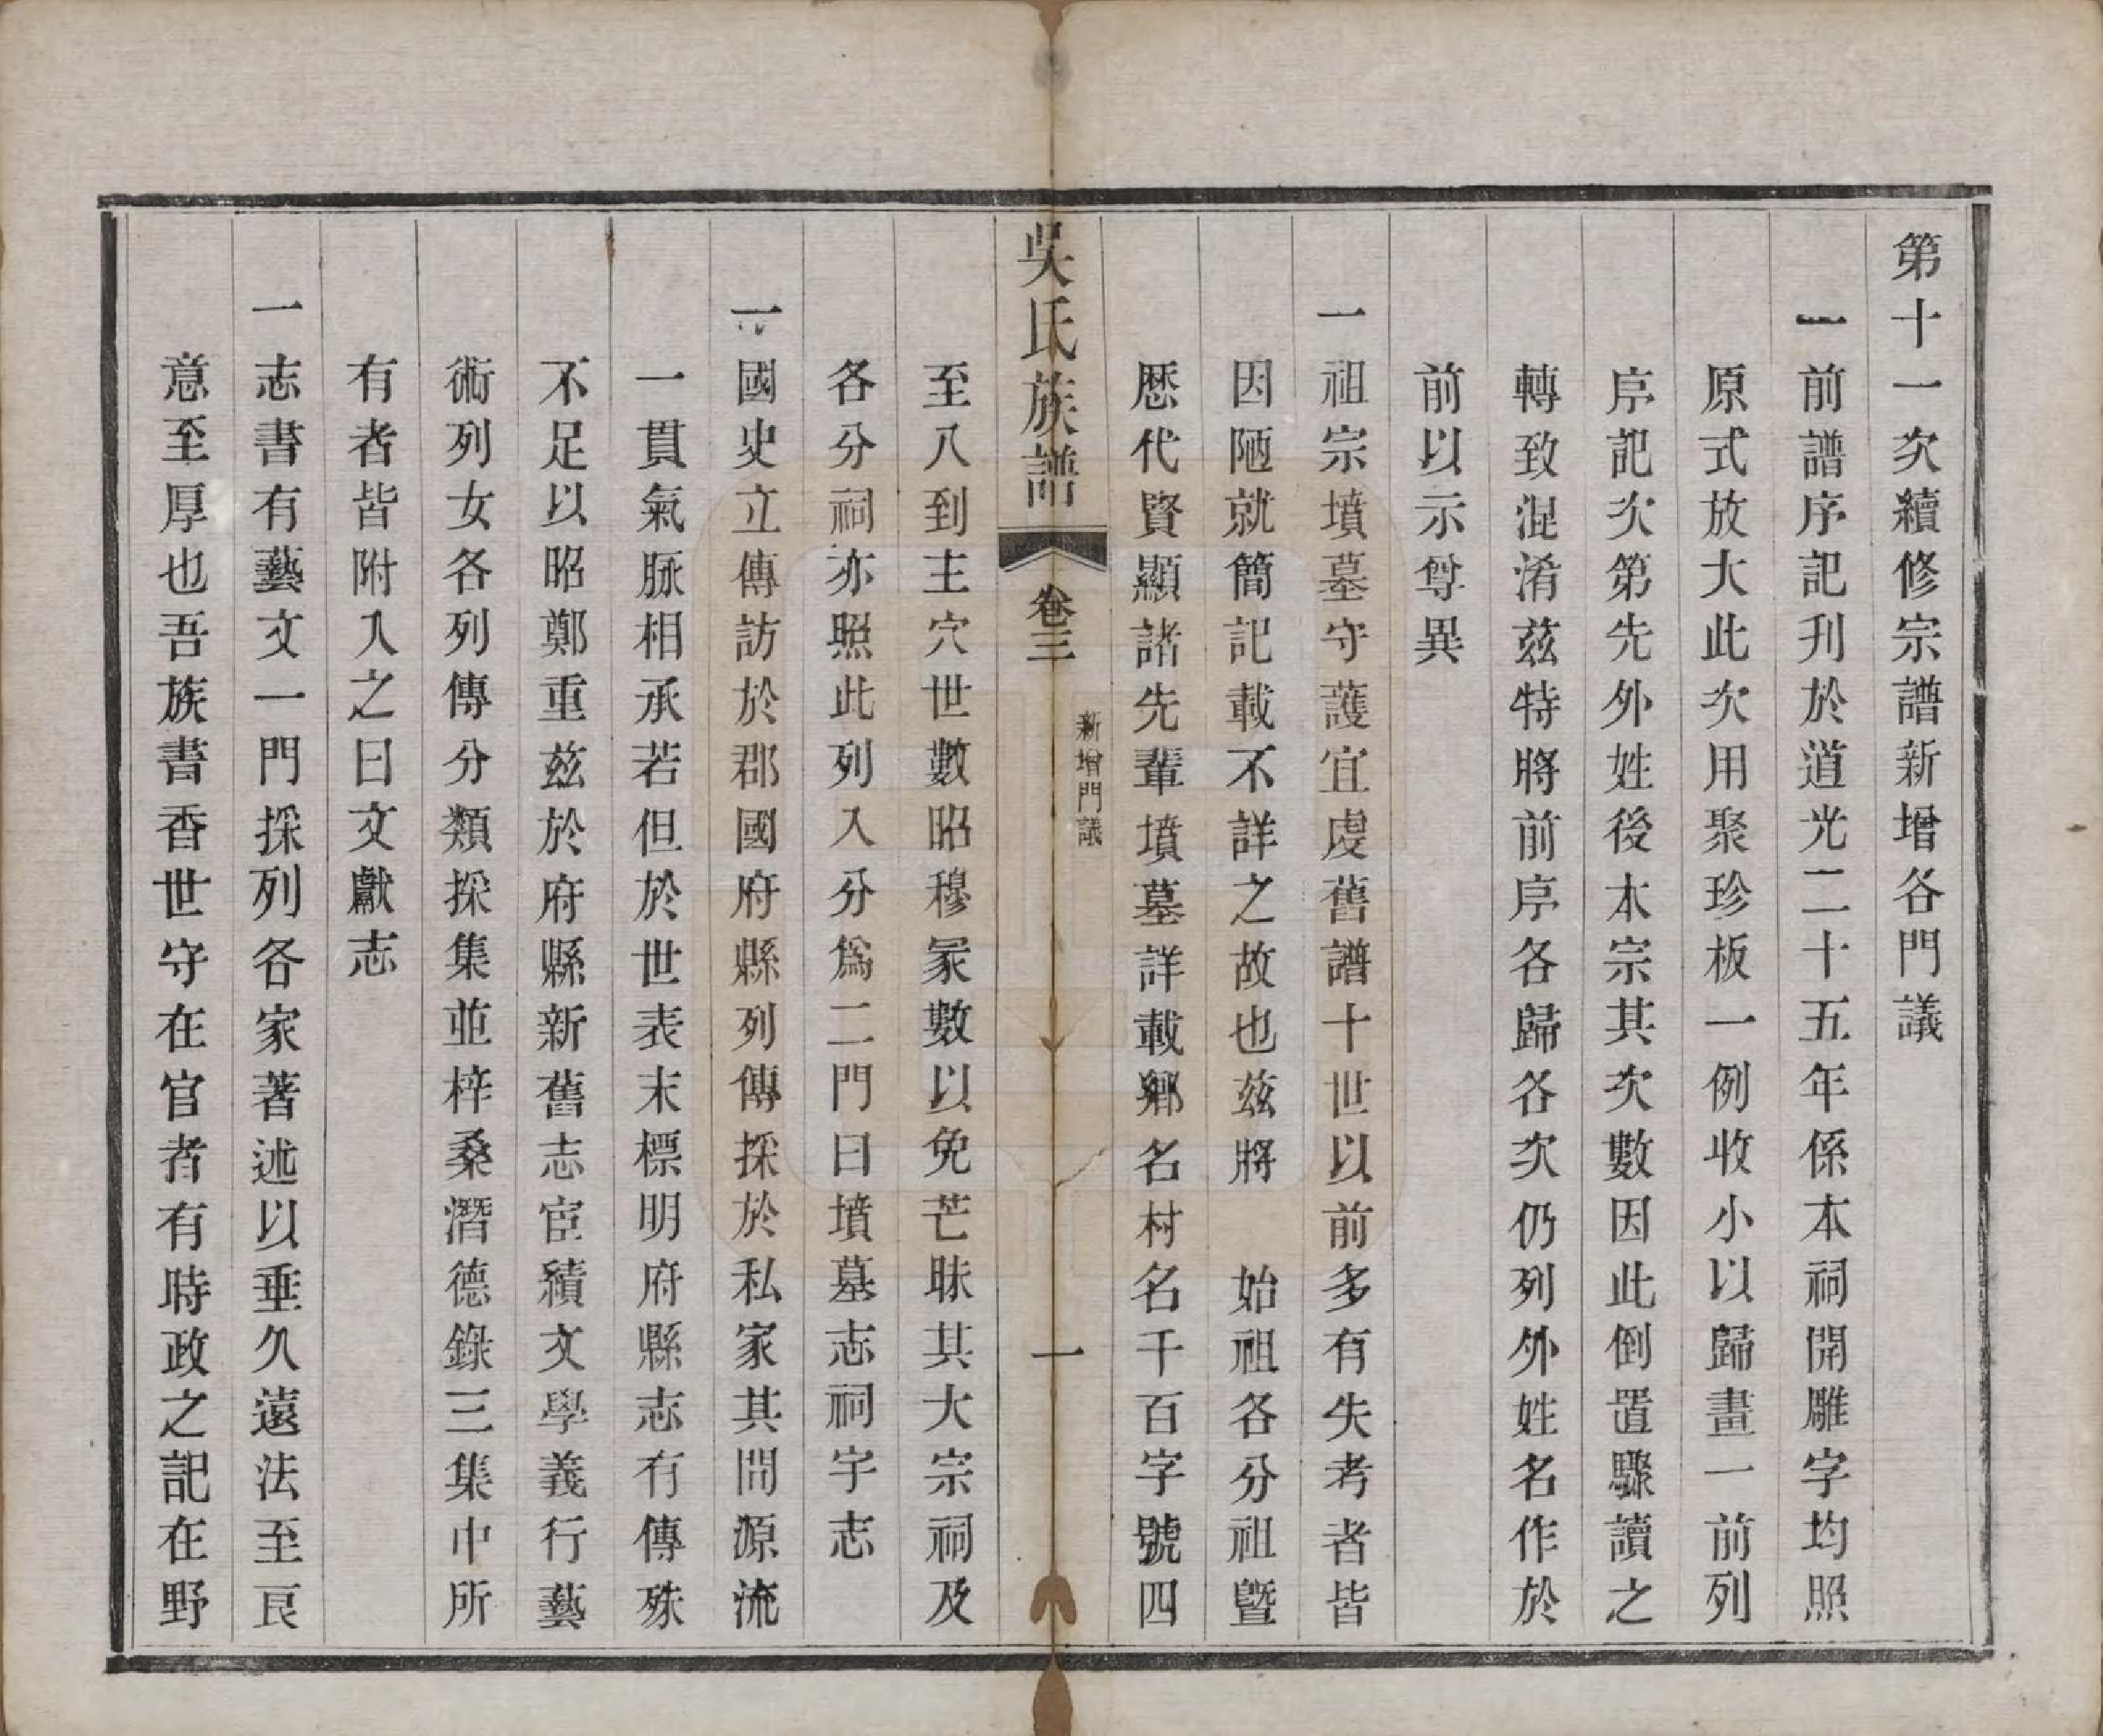 第十一次續修宗譜新增各門議
一前譜序記刋於道光二十五年係本祠開雕字均照
原式放大此次用聚珍板一例收小以歸畫一前列
序記次第先外姓後本宗其次數因此倒置驟讀之
轉致混淆茲特將前序各歸各次仍列外姓名作於
前以示尊異
一祖宗墳墓守護宜虔舊譜十世以前多有失考者皆
因陋就簡記載不詳之故也茲將 始祖各分祖曁
歷代賢顯諸先輩墳墓詳載鄉名村名千百字號四
吳氏族譜 卷三 新增門議 一
至八到主穴世數昭穆冢數以免芒昧其大宗祠及
各分祠亦照此列入分爲二門曰墳墓志祠宇志
一國史立傳訪於郡國府縣列傳採於私家其間源流
一貫氣脈相承若但於世表末標明府縣志有傳殊
不足以昭鄭重茲於府縣新舊志宦績文學義行藝
術列女各列傳分類採集並梓桑潛德錄三集中所
有者皆附入之曰文獻志
一志書有藝文一門採列各家著述以垂久遠法至良
意至厚也吾族書香世守在官者有時政之記在野